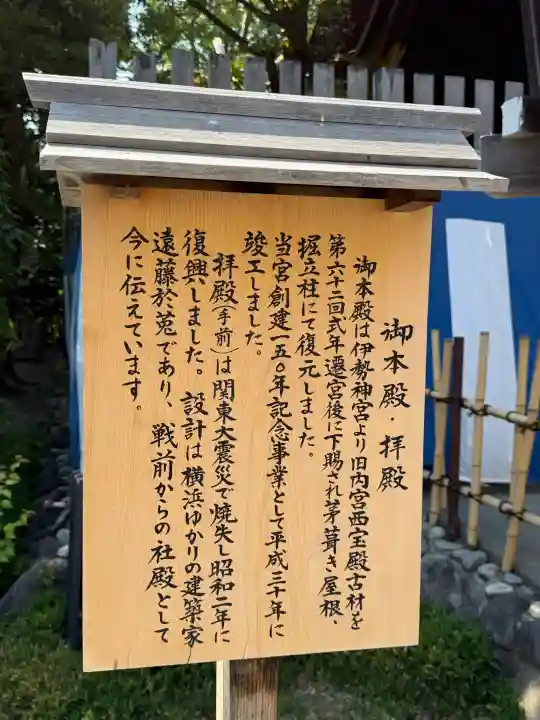 御本殿・拝殿
御本殿は伊勢神宮より旧内宮西宝殿古材を
第六十二回式年遷宮後に下賜され茅葺き屋根、
掘立柱にて復元しました。
当宮創建一五〇年記念事業として平成三十年に
竣工しました。
拝殿(手前)は関東大震災で焼失し昭和二年に
復興しました。設計は横浜ゆかりの建築家
遠藤於菟であり、戦前からの社殿として
今に伝えています。